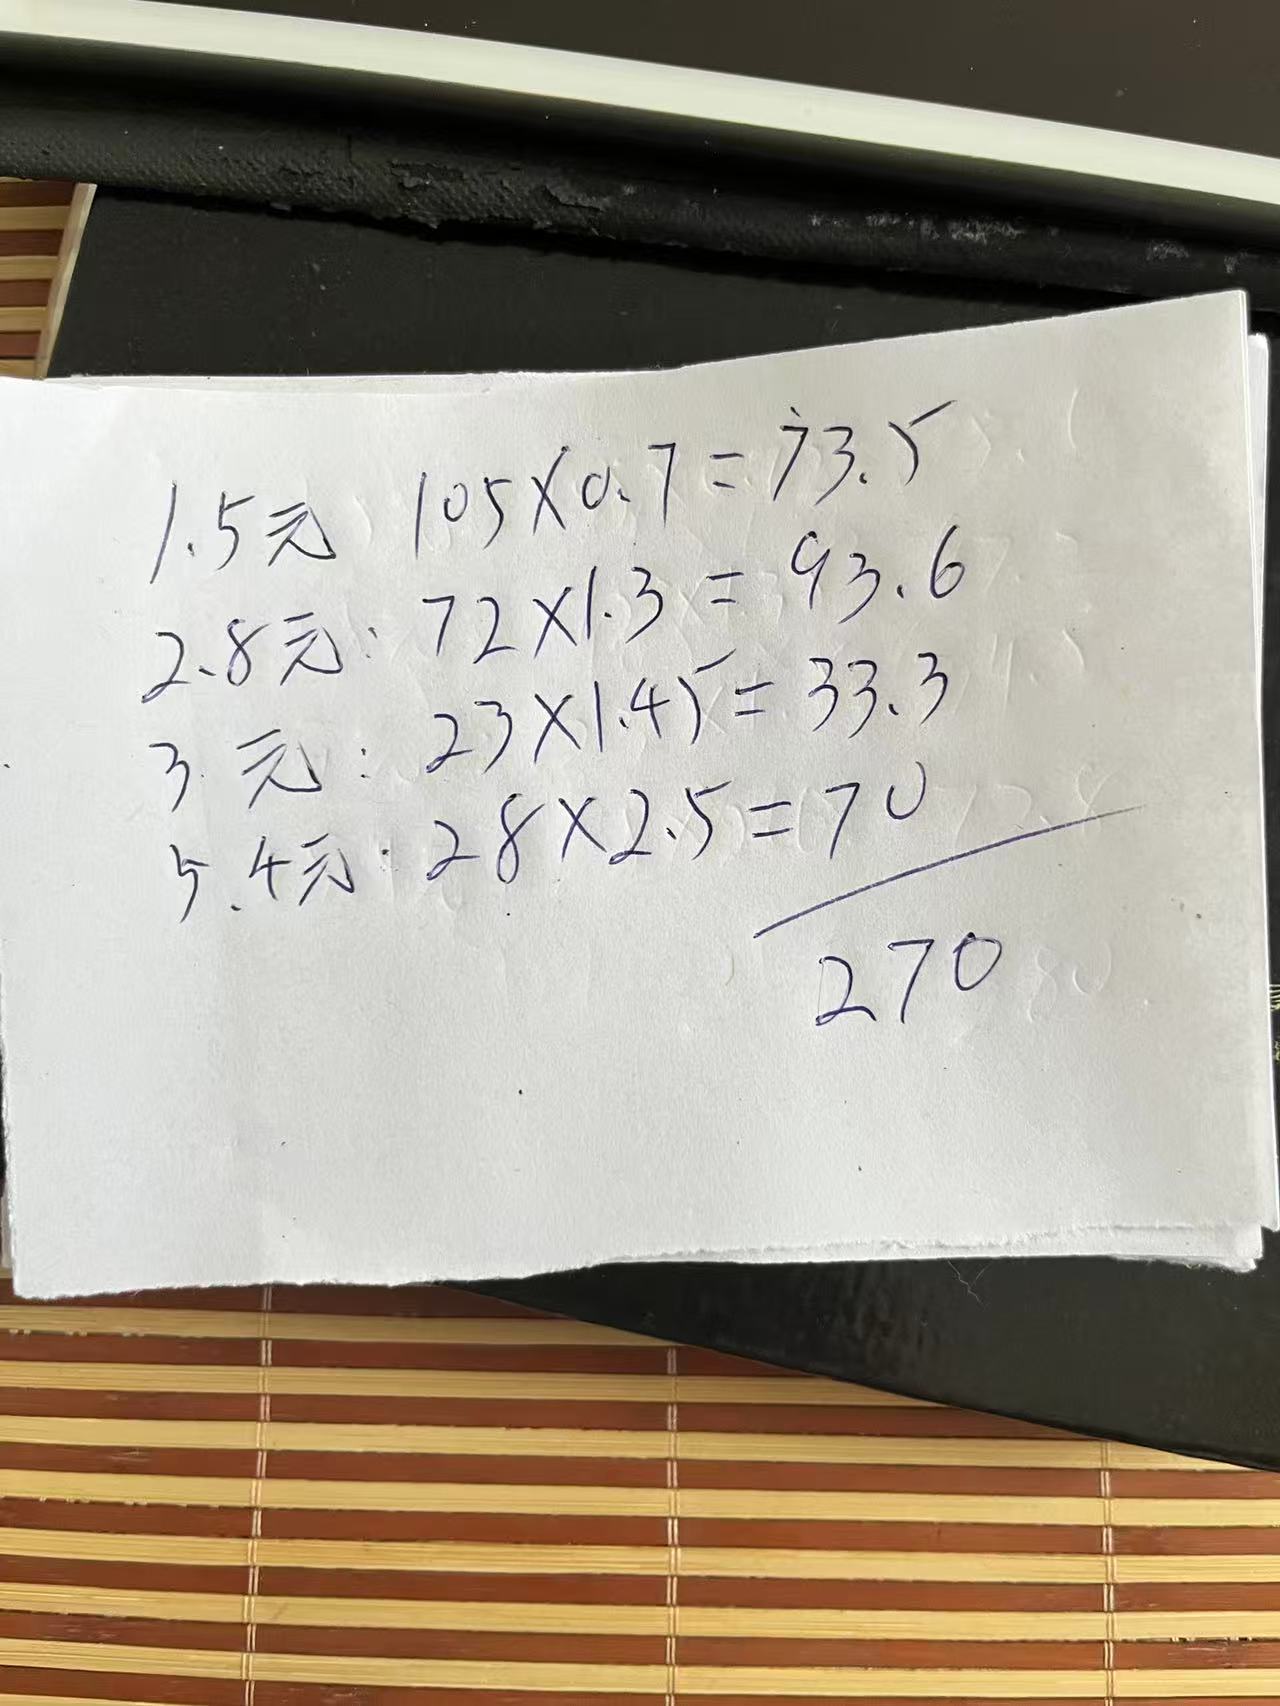 1.5元 105×0.7=73.5
2.8元: 72×1.3=93.6
3元: 23×1.45=33.3
5.4元: 28×2.5=70
270